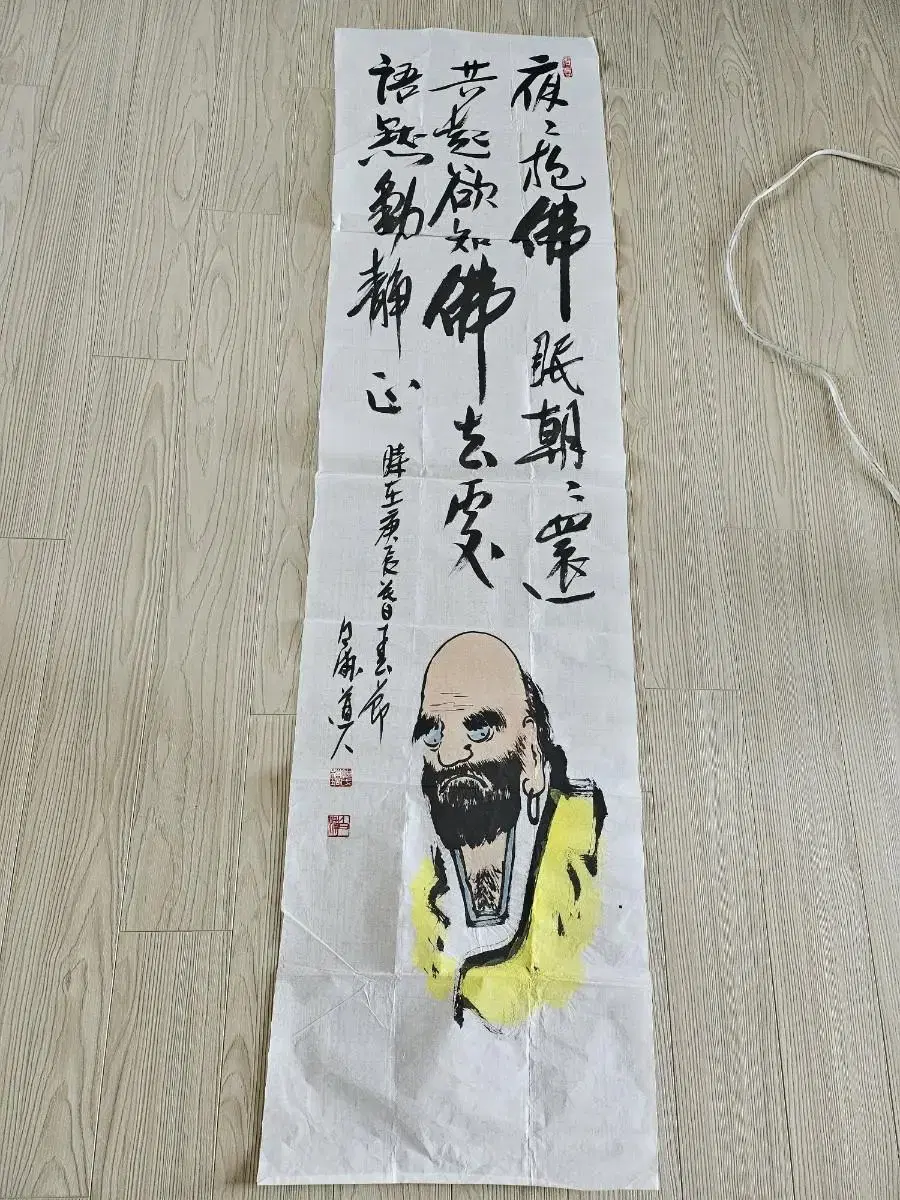 夜〻抱佛眠朝〻還
共起欲知佛去處
語默動靜
時在庚辰春節
道人